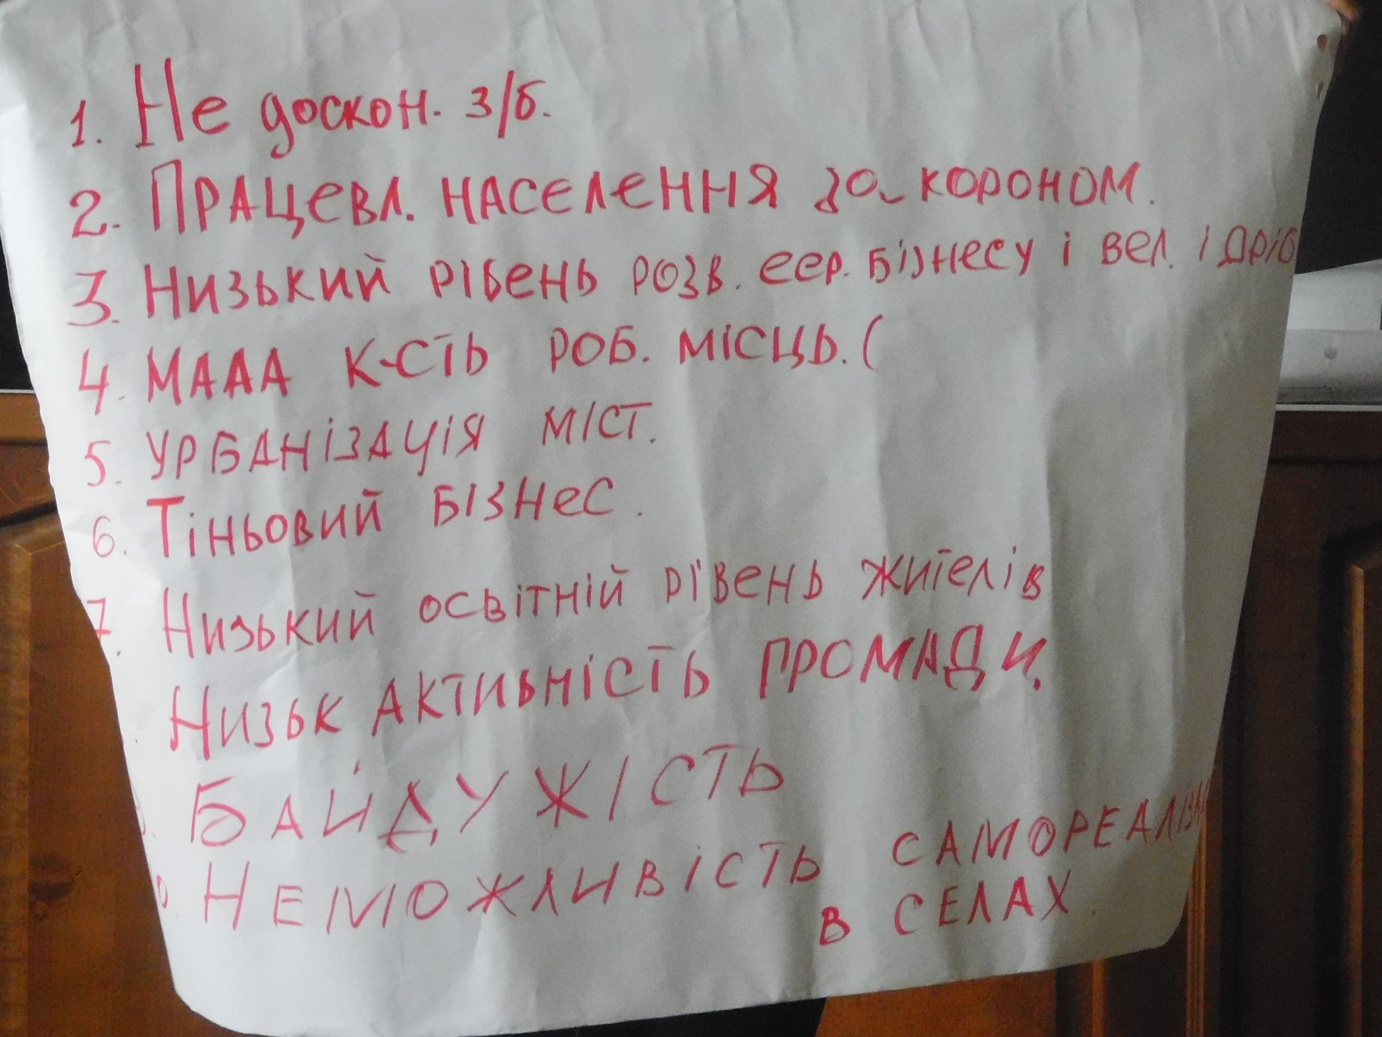 1. Не доскон. з/б.
2. Працевл. населення за короном.
3. Низький рівень розв. сер. бізнесу і вел. і дріб
4. Мала к-сть роб. місць. (
5. Урбанізація міст.
6. Тіньовий бізнес.
7. Низький освітній рівень жителів
Низьк активність громади.
Байдужість
Неможливість самореаліз
в селах.